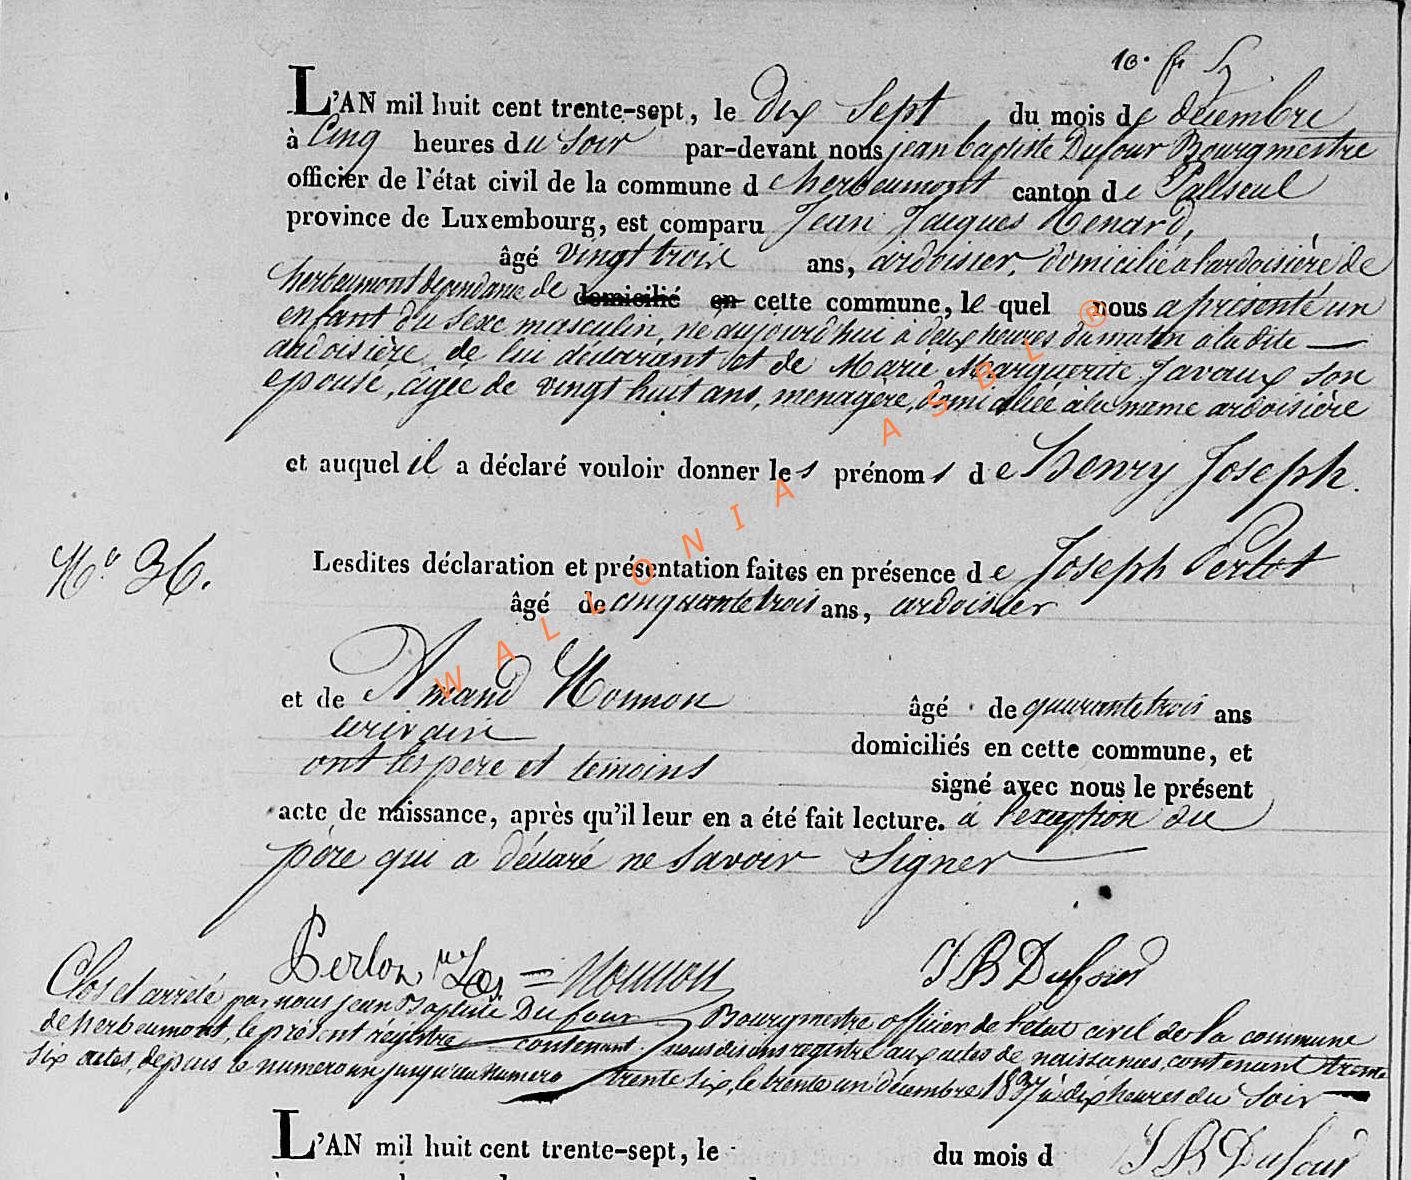 L'AN mil huit cent trente-sept, le dix Sept du mois de décembre
à Cinq heures du Soir par-devant nous jean baptiste Dufour Bourgmestre
officier de l'état civil de la commune d'herbeumont canton de Paliseul
province de Luxembourg, est comparu Jean Jacques Renard,
âgé vingt trois ans, ardoisier, domicilié à l'ardoisière de
herbeumont dependance de domicilié en cette commune, le quel nous a présenté un
enfant du sexe masculin, né aujourd'hui à deux heures du matin à la dite
ardoisière, de lui déclarant et de Marie Marguerite Javaux son
epouse, agée de vingt huit ans, menagère, domiciliée à la meme ardoisière
et auquel il a déclaré vouloir donner les prénoms de Henry Joseph.
Lesdites déclaration et présentation faites en présence de Joseph Perlot
N° 36.
âgé de cinquante trois ans, ardoisier
et de Amand Monnon âgé de quarante trois ans
ecrivain domiciliés en cette commune, et
ont les pere et temoins signé avec nous le présent
acte de naissance, après qu'il leur en a été fait lecture. à l'exception du
père qui a déclaré ne Savoir Signer
Monnon J B Dufour
Clos et arrêté par nous jean Baptiste Dufour Bourgmestre officier de l'etat civil de la commune
de herbeumont, le présent registre contenant nous disons registre aux actes de naissances, contenant trente
six actes, depuis le numero un jusqu'au numero trente six, le trente un décembre 1837 à dix heures du Soir
L'AN mil huit cent trente-sept, le du mois d J B Dufour
WALLONIA ASBL ®